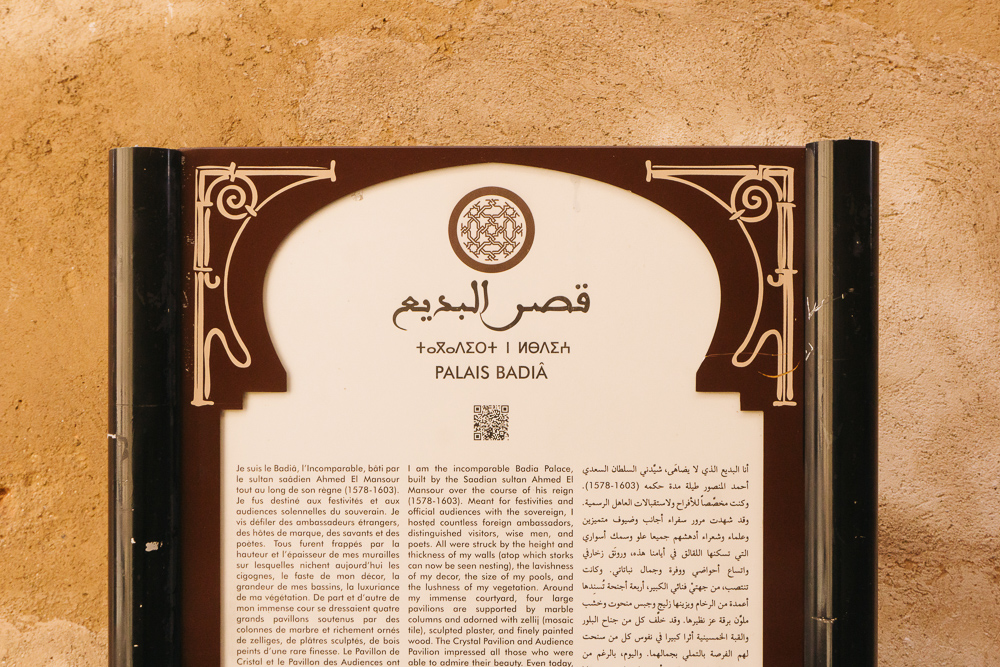 قصر البديع
ⵜⴰⴳⴰⴷⵉⵔⵜ ⵏ ⵍⴱⴷⵉⵄ
PALAIS BADIÂ
Je suis le Badiâ, l'Incomparable, bâti par
le sultan saâdien Ahmed El Mansour
tout au long de son règne (1578-1603).
Je fus destiné aux festivités et aux
audiences solennelles du souverain. Je
vis défiler des ambassadeurs étrangers,
des hôtes de marque, des savants et des
poètes. Tous furent frappés par la
hauteur et l'épaisseur de mes murailles
sur lesquelles nichent aujourd'hui les
cigognes, le faste de mon décor, la
grandeur de mes bassins, la luxuriance
de ma végétation. De part et d'autre de
mon immense cour se dressaient quatre
grands pavillons soutenus par des
colonnes de marbre et richement ornés
de zelliges, de plâtres sculptés, de bois
peints d'une rare finesse. Le Pavillon de
Cristal et le Pavillon des Audiences ont
I am the incomparable Badia Palace,
built by the Saadian sultan Ahmed El
Mansour over the course of his reign
(1578-1603). Meant for festivities and
official audiences with the sovereign, I
hosted countless foreign ambassadors,
distinguished visitors, wise men, and
poets. All were struck by the height and
thickness of my walls (atop which storks
can now be seen nesting), the lavishness
of my decor, the size of my pools, and
the lushness of my vegetation. Around
my immense courtyard, four large
pavilions are supported by marble
columns and adorned with zellij (mosaic
tile), sculpted plaster, and finely painted
wood. The Crystal Pavilion and Audience
Pavilion impressed all those who were
able to admire their beauty. Even today,
أنا البديع الذي لا يضاهَى، شيّدني السلطان السعدي
أحمد المنصور طيلة مدة حكمه (1603-1578).
وكنت مخصّصاً للأفراح ولاستقبالات العاهل الرسمية.
وقد شهدت مرور سفراء أجانب وضيوف متميزين
وعلماء وشعراء أدهشهم جميعا علو وسمك أسواري
التي تسكنها اللقالق في أيامنا هذه، ورونق زخارفي
واتساع أحواضي ووفرة وجمال نباتاتي. وكانت
تنتصب، من جهتيْ فنائي الكبير، أربعة أجنحة تُسنِدها
أعمدة من الرخام ويزينها زليج وجبس منحوت وخشب
ملوّن برقة عز نظيرها. وقد خلف كل من جناح البلور
والقبة الخمسينية أثرا كبيرا في نفوس كل من سنحت
لهم الفرصة بالتملي بجمالهما. واليوم، بالرغم من